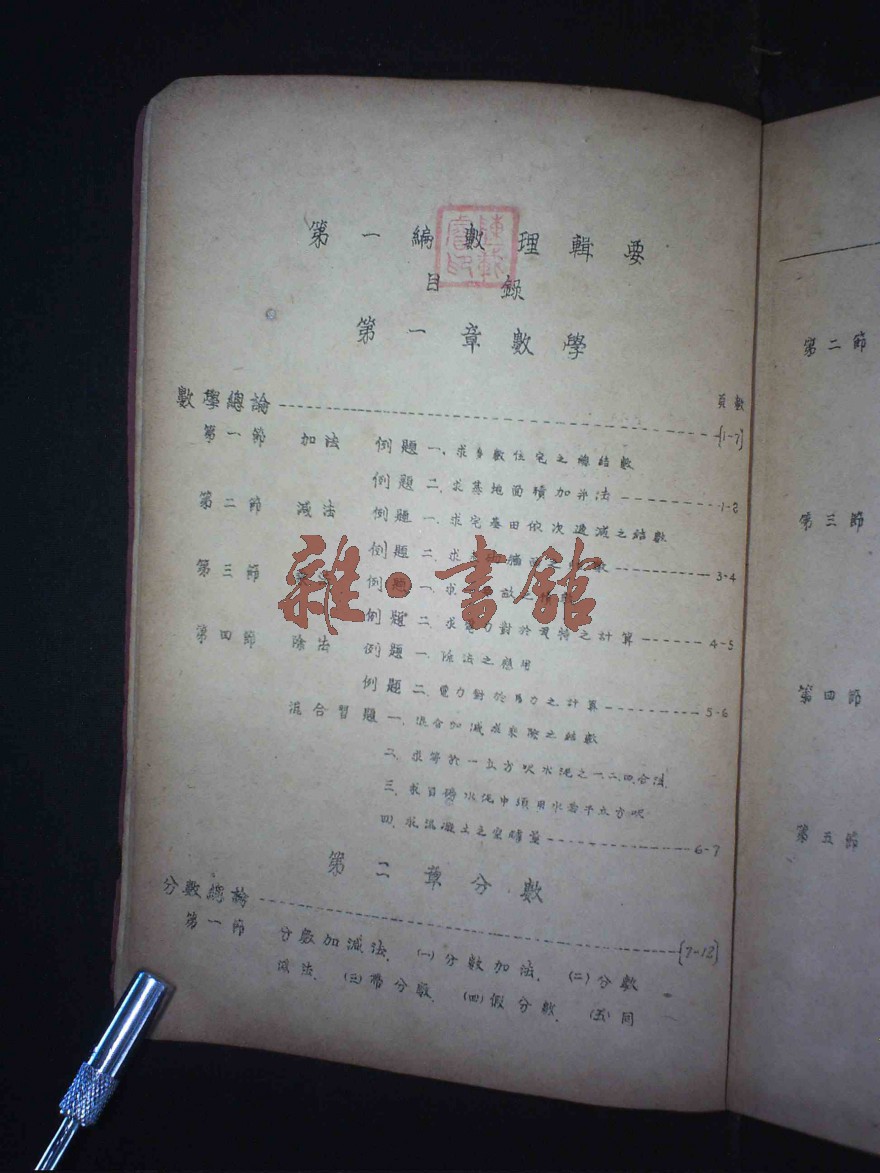 第一編數理輯要
目錄
第一章數學
頁數
數學總論 [1-7]
第一節 加法 例題一、求多數住宅之總結數
例題二、求基地面積加并法 1-2
第二節 減法 例題一、求宅基田依次遞減之結數
例題二、求 3-4
第三節 例題一、求
例題二、求電力對於瓦特之計算 4-5
第四節 除法 例題一、除法之應用
例題二、電力對於馬力之計算 5-6
混合習題 一、混合加減求乘除之結數
二、求等於一立方呎水泥之一、二、四、合法
三、求每桶水泥中須用水若干立方呎
四、求混凝土之 6-7
第二章分數
分數總論 [7-12]
第一節 分數加減法、(一)分數加法、(二)分數
減法、(三)帶分數、(四)假分數、(五)同
第二節
第三節
第四節
第五節
雜·書館